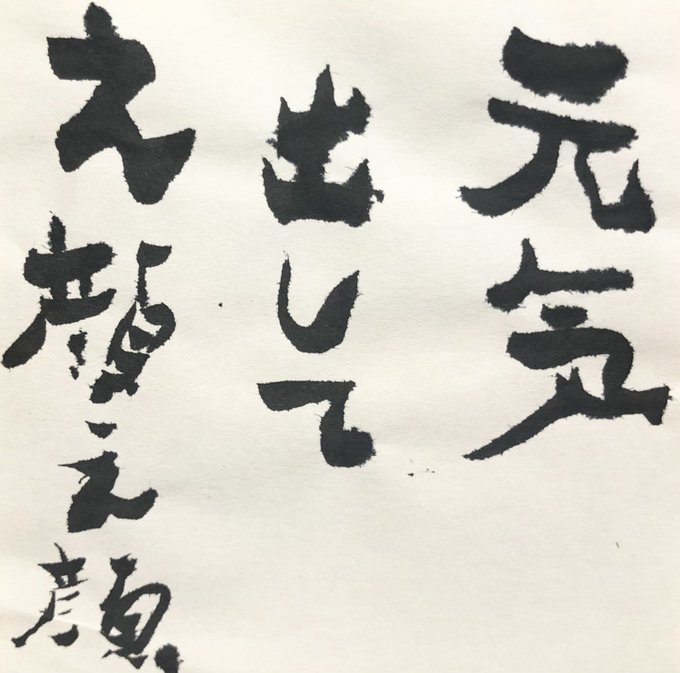 元気
出して
え顔え顔